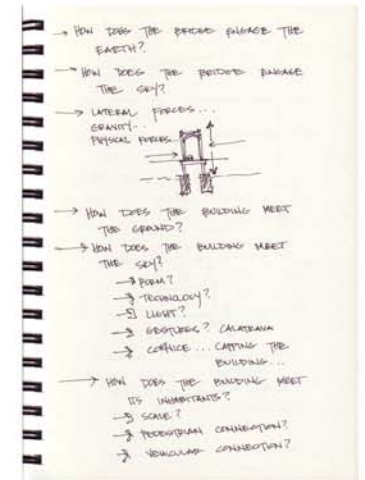 → HOW DOES THE BRIDGE ENGAGE THE
EARTH?
→ HOW DOES THE BRIDGE ENGAGE
THE SKY?
→ LATERAL FORCES...
GRAVITY...
PHYSICAL FORCES...
→ HOW DOES THE BUILDING MEET
THE GROUND?
→ HOW DOES THE BUILDING MEET
THE SKY?
→ FORM?
→ TECHNOLOGY?
→ LIGHT?
→ GESTURES? CALATRAVA
→ CORNICE... CAPPING THE
BUILDING...
→ HOW DOES THE BUILDING MEET
ITS INHABITANTS?
→ SCALE?
→ PEDESTRIAN CONNECTION?
→ VEHICULAR CONNECTION?